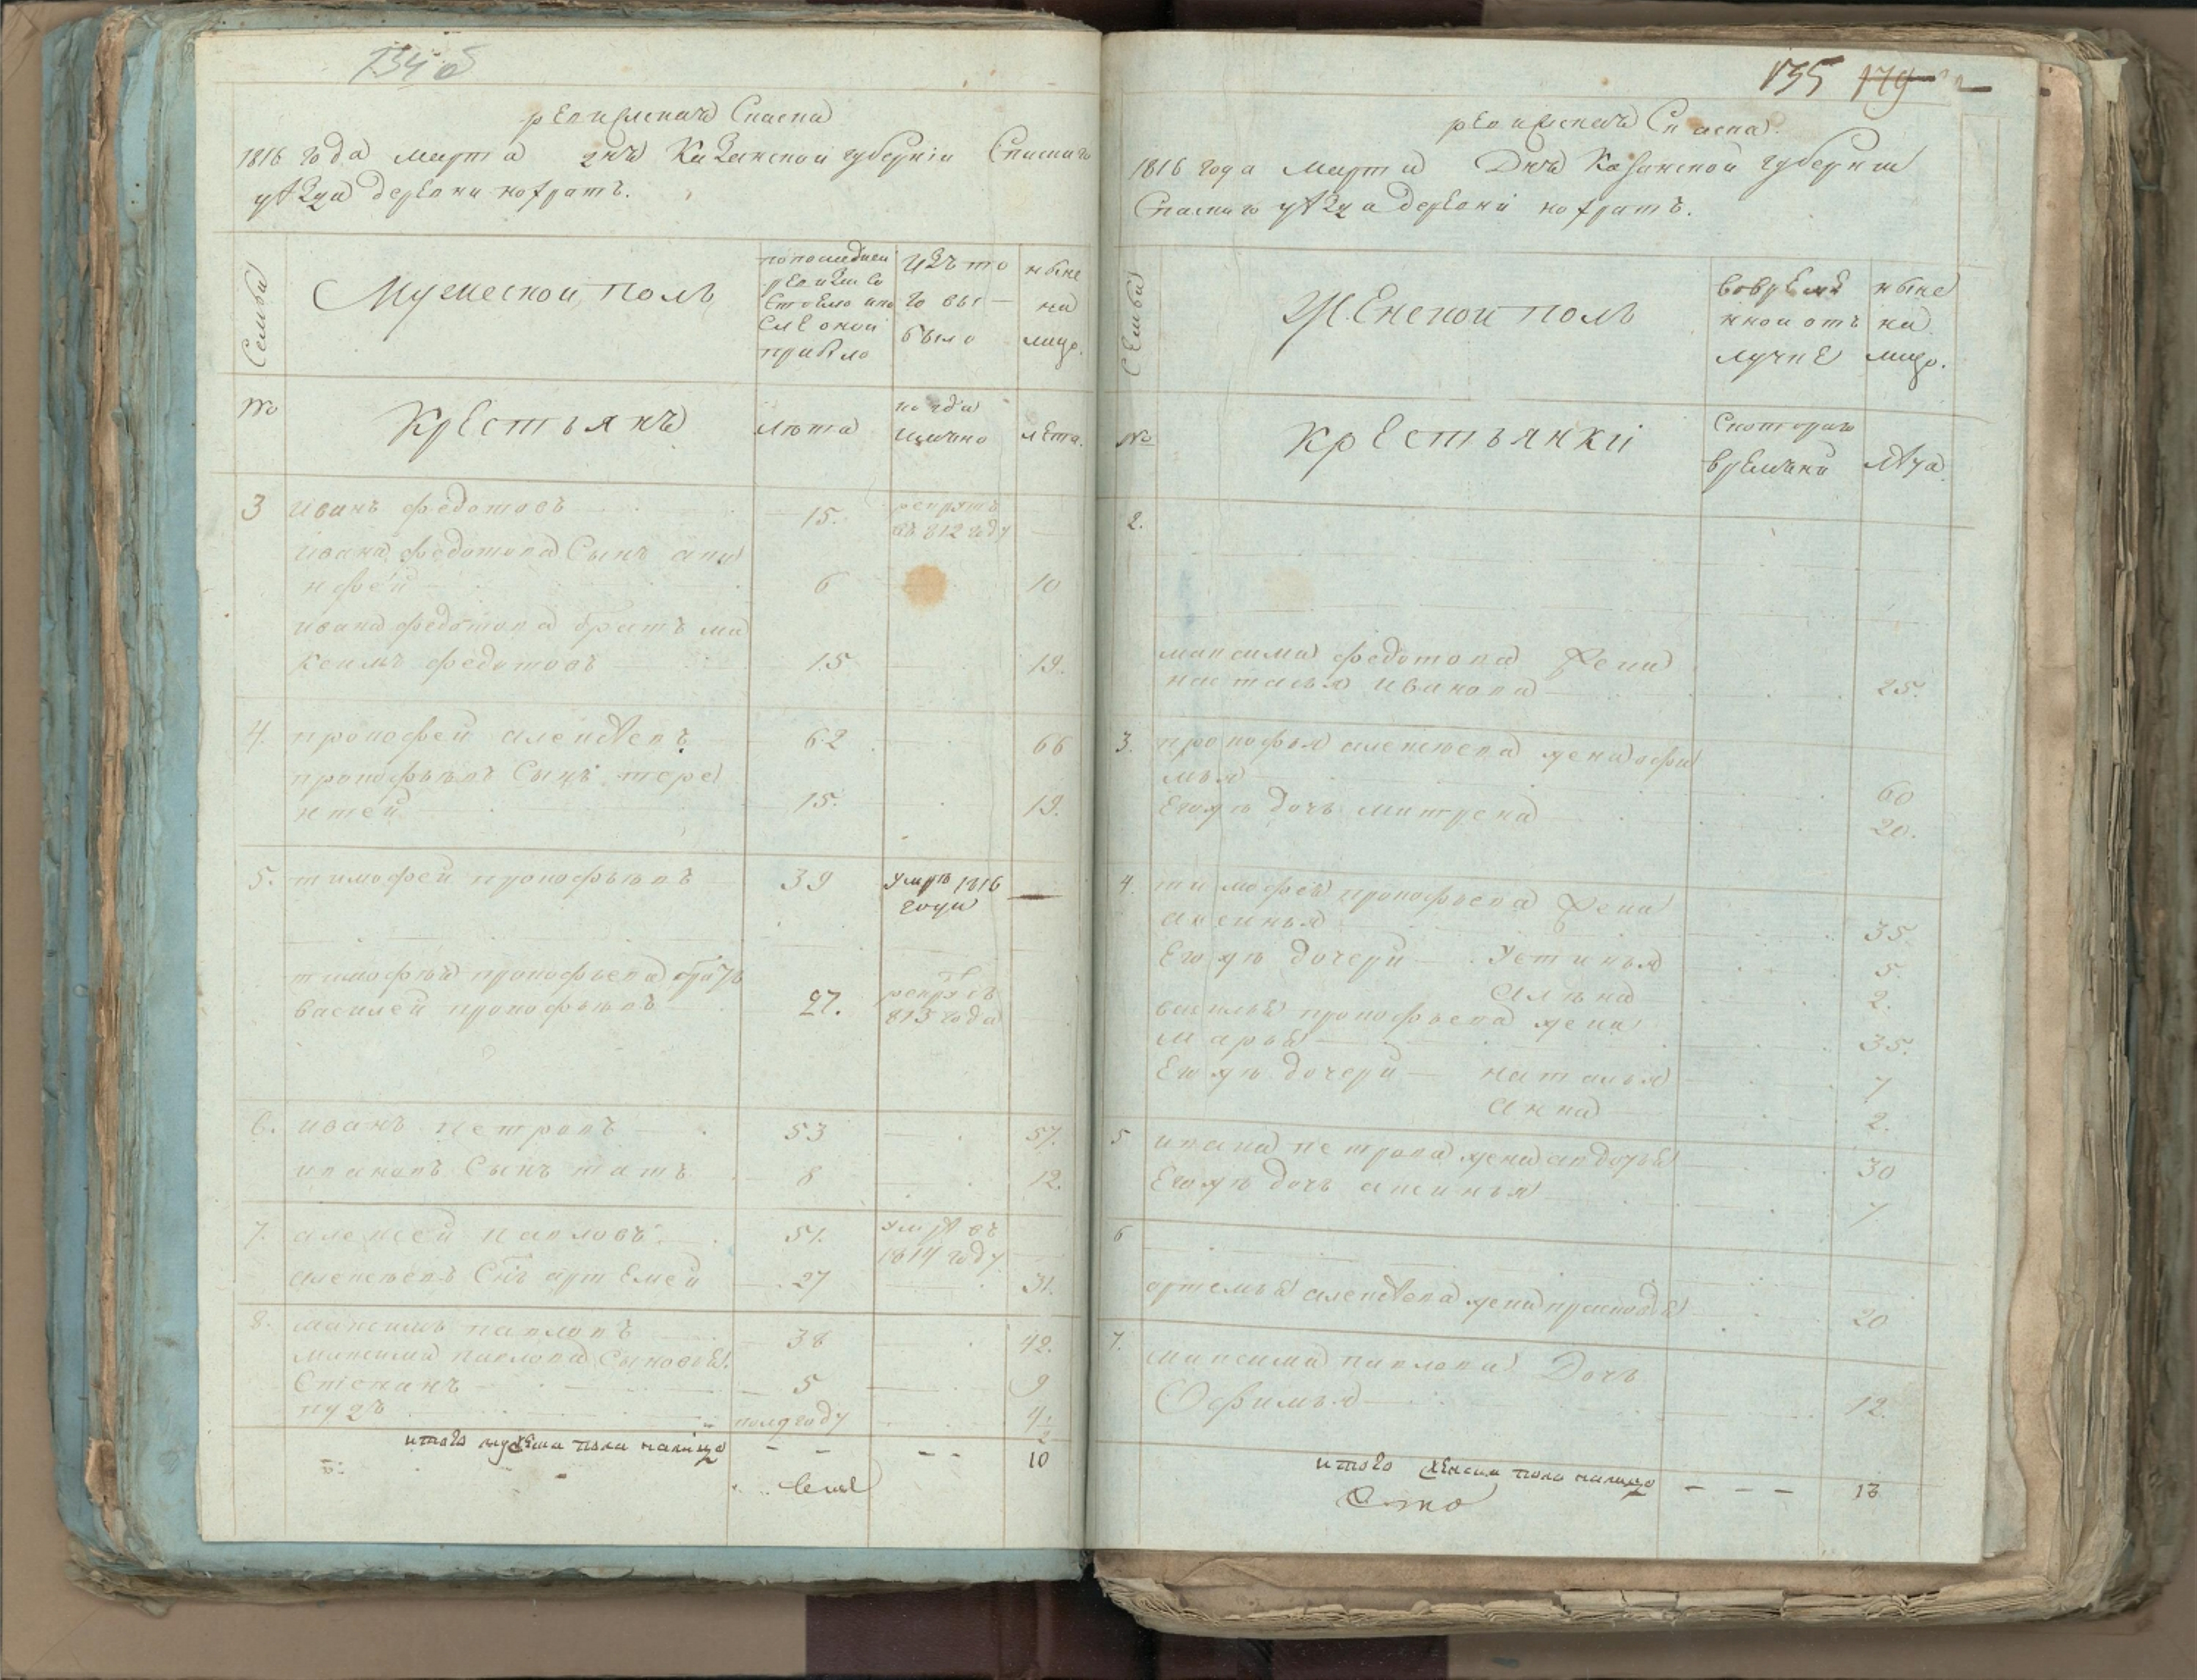 134 об
ревижская Скаска
1816 года марта дня Казанской губернии Спаскаго
уѣзда деревни нократъ.
Семьи
Мужеской полъ
попоследней
ревизии со
стояло или
после оной
прибыло
Изъ то
го вы
было
ныне
на
лицо.
№
Крестьянъ
лѣта
когда
имянно
лѣта.
3 иванъ федотовъ 15. рекрутъ
въ 812 году
ивана федотова Сынъ
нфей 6 10
ивана федотова братъ ма
ксимъ федотовъ 15 19.
4. прокофей алексѣевъ 62 66
прокофьевъ Сынъ тере
нтей 15. 19.
5. тимофей прокофьевъ 39 умре 1816
года
тимофея прокофьева братъ
василей прокофьевъ 27. рекрутъ
813 года
6. иванъ петровъ 53 57.
ивановъ Сынъ 8 12.
7. алексей павловъ 51. умре въ
1814 году
алексеевъ Снъ артемей 27 31.
8. максимъ павловъ 38 42.
максима павлова Сыновья
Степанъ 5 9
полугоду 4 1/2
итого мужеска пола налицо 10
135 179
ревижская Скаска.
1816 года марта Дня Казанской губернии
Спаскаго уѣзда деревни нократъ.
Семьи
Женской полъ
вовремя
нной отъ
лучке
ныне
на
лицо.
№
Крестьянки
Скотораго
времяни
лѣта
2.
максима федотова Жена
наталья иванова 25.
3. прокофья алексеева жена офи
мья 60
Его же дочь матрена 20.
4. тимофея прокофьева Жена
аксинья 35
Его же дочери устинья 5.
алена 2.
василья прокофьева жена
марья 35.
Его же дочери наталья 7
анна 2.
5 ивана петрова жена авдотья 30
Его же дочь аксинья 7
6
артемья алексѣева жена прасковья 20
7. максима павлова Дочь
Офимья 12.
итого женска пола налицо 13